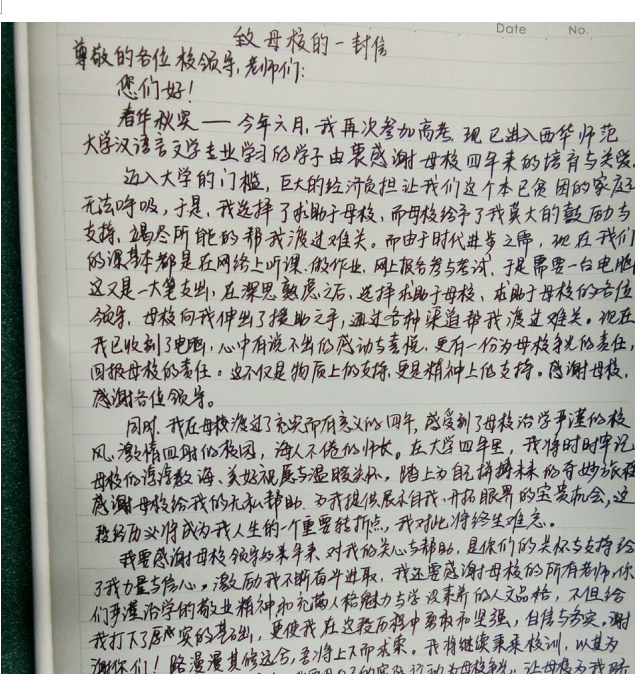 Date No.
致母校的一封信
尊敬的各位校领导,老师们:
您们好!
春华秋实——今年六月,我再次参加高考,现已进入西华师范
大学汉语言文学专业学习的学子由衷感谢母校四年来的培育与关爱。
迈入大学的门槛,巨大的经济负担让我们这个本已贫困的家庭
无法呼吸,于是,我选择了求助于母校,而母校给予了我莫大的鼓励与
支持,竭尽所能的帮我渡过难关。而由于时代进步之席,现在我们
的课基本都是在网络上听课,做作业,网上报名参与考试,于是需要一台电脑
这又是一大笔支出,在深思熟虑之后,选择求助于母校,求助于母校的各位
领导,母校向我伸出了援助之手,通过各种渠道帮我渡过难关。现在
我已收到了电脑,心中有说不出的感动与喜悦,更有一份为母校争光的责任,
回报母校的责任。这不仅是物质上的支持,更是精神上的支持。感谢母校,
感谢各位领导。
同时,我在母校渡过了充实而有意义的四年,感受到了母校治学严谨的校
风,激情四射的校园,诲人不倦的师长。在大学四年里,我将时时牢记
母校的谆谆教诲、美好祝愿与温暖关怀,踏上为自己拼搏未来的奇妙旅程
感谢母校给我的无私帮助,为我提供展示自我、开拓眼界的宝贵机会,这
段经历必将成为我人生的一个重要转折点,我对此将终生难忘。
我要感谢母校领导多年来对我的关心与帮助,是你们的关怀与支持给
了我力量与信心,激励我不断奋斗进取,我还要感谢母校的所有老师,你
们严谨治学的敬业精神和充满人格魅力与学识素养的人文品格,不但给
我打下了厚实的基础,更使我在这段历程中勇敢和坚强,自信与务实。谢
谢你们!路漫漫其修远兮,吾将上下而求索。我将继续秉承校训,以其为
自己的实际行动为母校争光,让母校为我骄